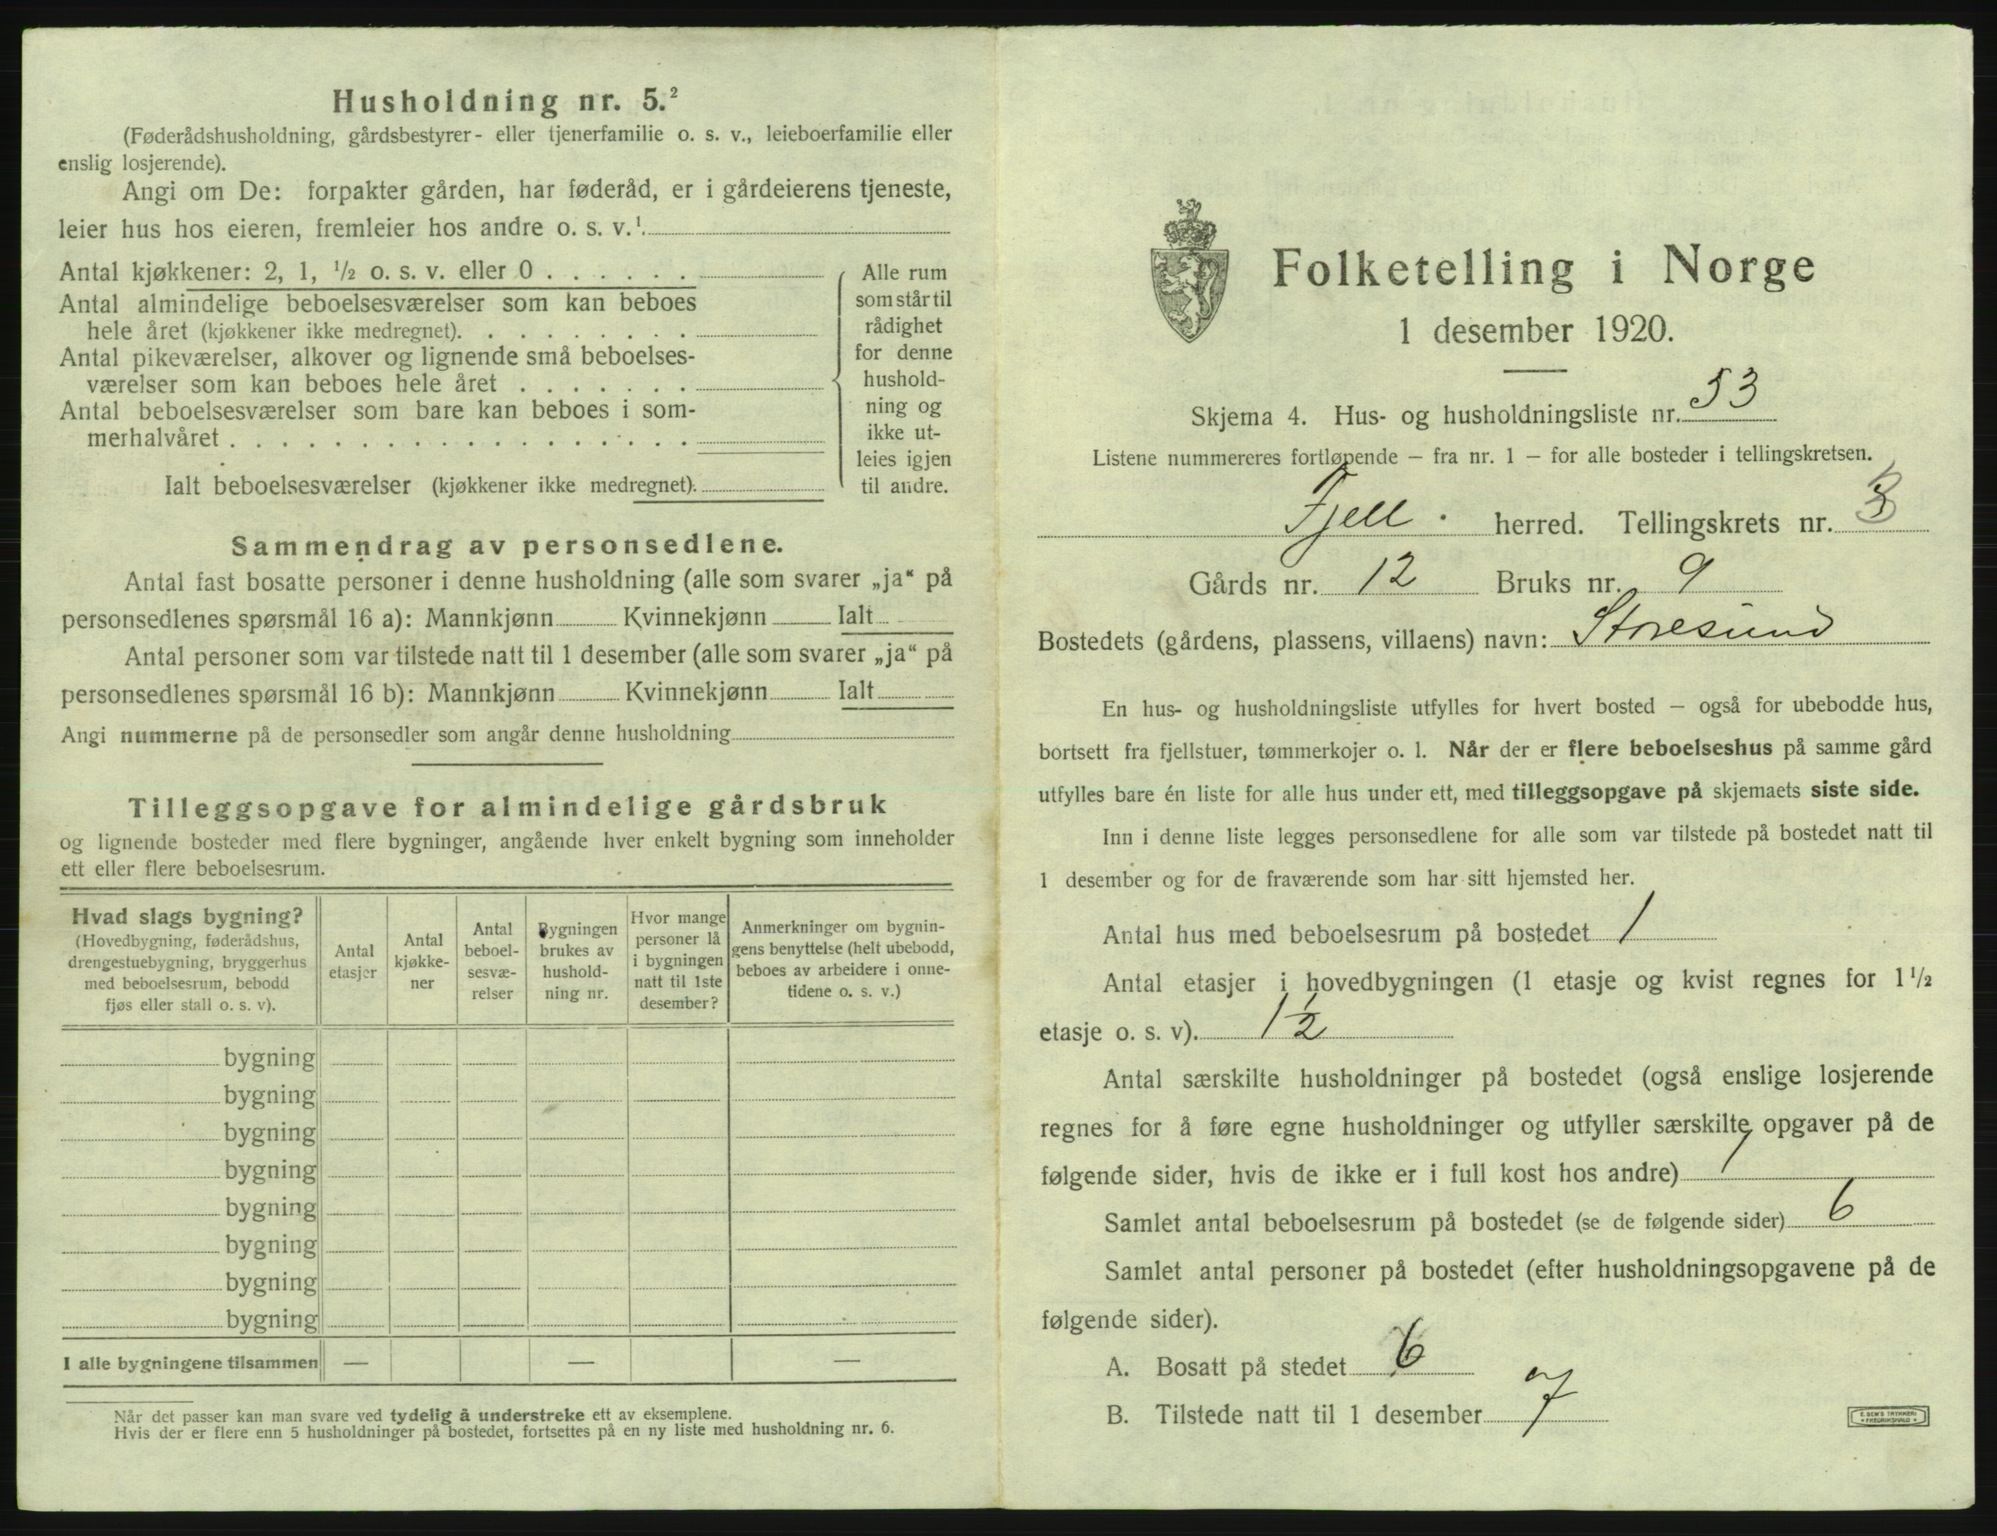 Husholdning nr. 5.²
(Føderådshusholdning, gårdsbestyrer- eller tjenerfamilie o. s. v., leieboerfamilie eller
enslig losjerende).
Angi om De: forpakter gården, har føderåd, er i gårdeierens tjeneste,
leier hus hos eieren, fremleier hos andre o. s. v.¹.
Antal kjøkkener: 2, 1, ½ o. s. v. eller 0 . . . . . .
Antal almindelige beboelsesværelser som kan beboes
hele året (kjøkkener ikke medregnet). . . . . . . . .
Antal pikeværelser, alkover og lignende små beboelses-
værelser som kan beboes hele året . . . . . . .
Antal beboelsesværelser som bare kan beboes i som-
merhalvåret . . . . . . . . . . . . . . . . . .
Ialt beboelsesværelser (kjøkkener ikke medregnet).
Alle rum
som står til
rådighet
for denne
hushold-
ning og
ikke ut-
leies igjen
til andre.
Sammendrag av personsedlene.
Antal fast bosatte personer i denne husholdning (alle som svarer „ja“ på
personsedlenes spørsmål 16 a): Mannkjønn Kvinnekjønn Ialt
Antal personer som var tilstede natt til 1 desember (alle som svarer „ja“ på
personsedlenes spørsmål 16 b): Mannkjønn Kvinnekjønn Ialt
Angi nummerne på de personsedler som angår denne husholdning
Tilleggsopgave for almindelige gårdsbruk
og lignende bosteder med flere bygninger, angående hver enkelt bygning som inneholder
ett eller flere beboelsesrum.
Hvad slags bygning?
(Hovedbygning, føderådshus,
drengestuebygning, bryggerhus
med beboelsesrum, bebodd
fjøs eller stall o. s. v).
Antal
etasjer
Antal
kjøkke-
ner
Antal
beboel-
sesvæ-
relser
Bygningen
brukes av
hushold-
ning nr.
Hvor mange
personer lå
i bygningen
natt til 1ste
desember?
Anmerkninger om bygnin-
gens benyttelse (helt ubebodd,
beboes av arbeidere i onne-
tidene o. s. v.)
bygning
bygning
bygning
bygning
bygning
bygning
bygning
bygning
I alle bygningene tilsammen — — —
Når det passer kan man svare ved tydelig å understreke ett av eksemplene.
Hvis der er flere enn 5 husholdninger på bostedet, fortsettes på en ny liste med husholdning nr. 6.
Folketelling i Norge
1 desember 1920.
Skjema 4. Hus- og husholdningsliste nr. 53
Listene nummereres fortløpende – fra nr. 1 – for alle bosteder i tellingskretsen.
Fjell. herred. Tellingskrets nr. 3
Gårds nr. 12 Bruks nr. 9
Bostedets (gårdens, plassens, villaens) navn: Storesund
En hus- og husholdningsliste utfylles for hvert bosted – også for ubebodde hus,
bortsett fra fjellstuer, tømmerkojer o. l. Når der er flere beboelseshus på samme gård
utfylles bare én liste for alle hus under ett, med tilleggsopgave på skjemaets siste side.
Inn i denne liste legges personsedlene for alle som var tilstede på bostedet natt til
1 desember og for de fraværende som har sitt hjemsted her.
Antal hus med beboelsesrum på bostedet 1
Antal etasjer i hovedbygningen (1 etasje og kvist regnes for 1½
etasje o. s. v). 1½
Antal særskilte husholdninger på bostedet (også enslige losjerende
regnes for å føre egne husholdninger og utfyller særskilte opgaver på de
følgende sider, hvis de ikke er i full kost hos andre) 1
Samlet antal beboelsesrum på bostedet (se de følgende sider) 6
Samlet antal personer på bostedet (efter husholdningsopgavene på de
følgende sider).
A. Bosatt på stedet 6
B. Tilstede natt til 1 desember 7
E. SEM'S TRYKKERI
• FREDRIKSHALD •